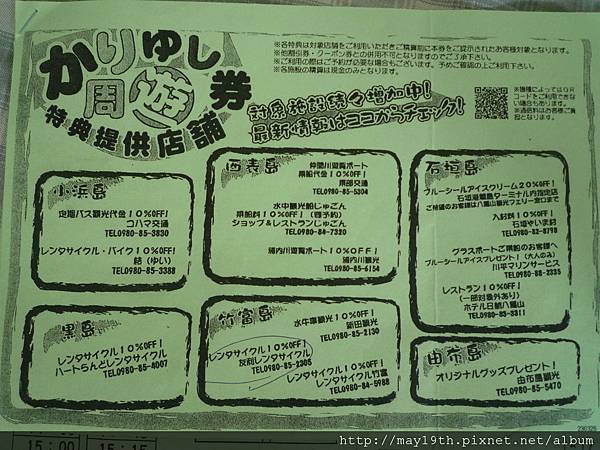 かりゆし
周遊券
特典提供店舗
※各特典は対象店舗をご利用いただきご精算前に本券をご提示されたお客様対象となります。
※他割引券・クーポン券との併用不可となりますのでご了承下さい。
※ご利用の際はご予約が必要な場合もございます。予めご確認の上ご利用下さい。
※各施設の精算は現金のみとなります。
対象施設続々増加中!
最新情報はココからチェック!
※機種によってはQR
コードをご利用できな
い場合もあります。
※通信料はお客様ご負
担となります。
小浜島
定期バス観光代金10%OFF!
コハマ交通
TEL0980-85-3830
レンタサイクル・バイク10%OFF!
結(ゆい)
TEL0980-85-3388
西表島
仲間川遊覧ボート
乗船代金10%OFF!
東部交通
TEL0980-85-5304
水中観光船じゅごん
乗船料10%OFF!(要予約)
ショップ&レストランじゅごん
TEL0980-84-7320
浦内川遊覧ボート10%OFF!
浦内川観光
TEL0980-85-6154
石垣島
ブルーシールアイスクリーム20%OFF!
石垣港離島ターミナル内指定店
ご特記のお客様は八重山観光フェリー窓口まで
入村料10%OFF!
石垣やいま村
TEL0980-82-8798
グラスボートご乗船のお客様へ
ブルーシールアイスプレゼント!(大人のみ)
川平マリンサービス
TEL0980-88-2335
レストラン10%OFF!
(一部対象外あり)
ホテル日航八重山
TEL0980-83-3311
黒島
レンタサイクル10%OFF!
ハートらんどレンタサイクル
TEL0980-85-4007
竹富島
水牛車観光10%OFF!
新田観光
TEL0980-85-2130
レンタサイクル10%OFF!
友利レンタサイクル
TEL0980-85-2305
レンタサイクル10%OFF!
レンタサイクル竹富
TEL0980-84-5988
由布島
オリジナルグッズプレゼント!
由布島観光
TEL0980-85-5470
230325
15:00
15:15
http://may19th.pixnet.net/album